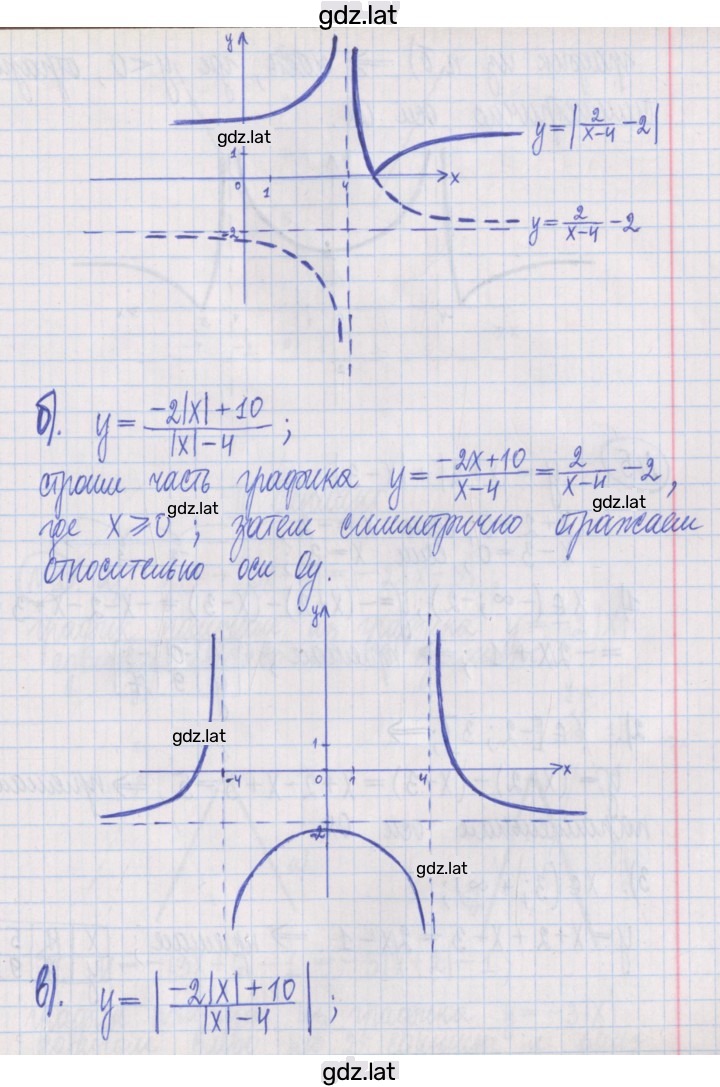 gdz.lat
y
y = |2/(x-4) - 2|
gdz.lat
1
0 1 4 x
-2
y = 2/(x-4) - 2
б). y = (-2|x| + 10)/(|x| - 4) ;
строим часть графика y = (-2x+10)/(x-4) = 2/(x-4) - 2,
gdz.lat gdz.lat
где x ⩾ 0 ; затем симметрично отражаем
относительно оси Oy.
y
gdz.lat
1
-4 0 1 4 x
-2
gdz.lat
в). y = |(-2|x| + 10)/(|x| - 4)| ;
gdz.lat